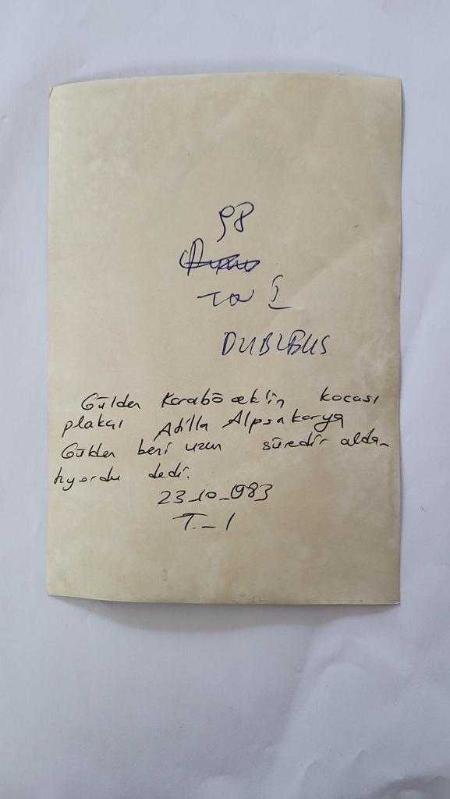 98
DUBLBUS
Gülden Karaböceklin kocası
plakçı Atilla Alpsakarya
Gülden beni uzun süredir alda-
tıyordu dedi.
23_10_983
T_1